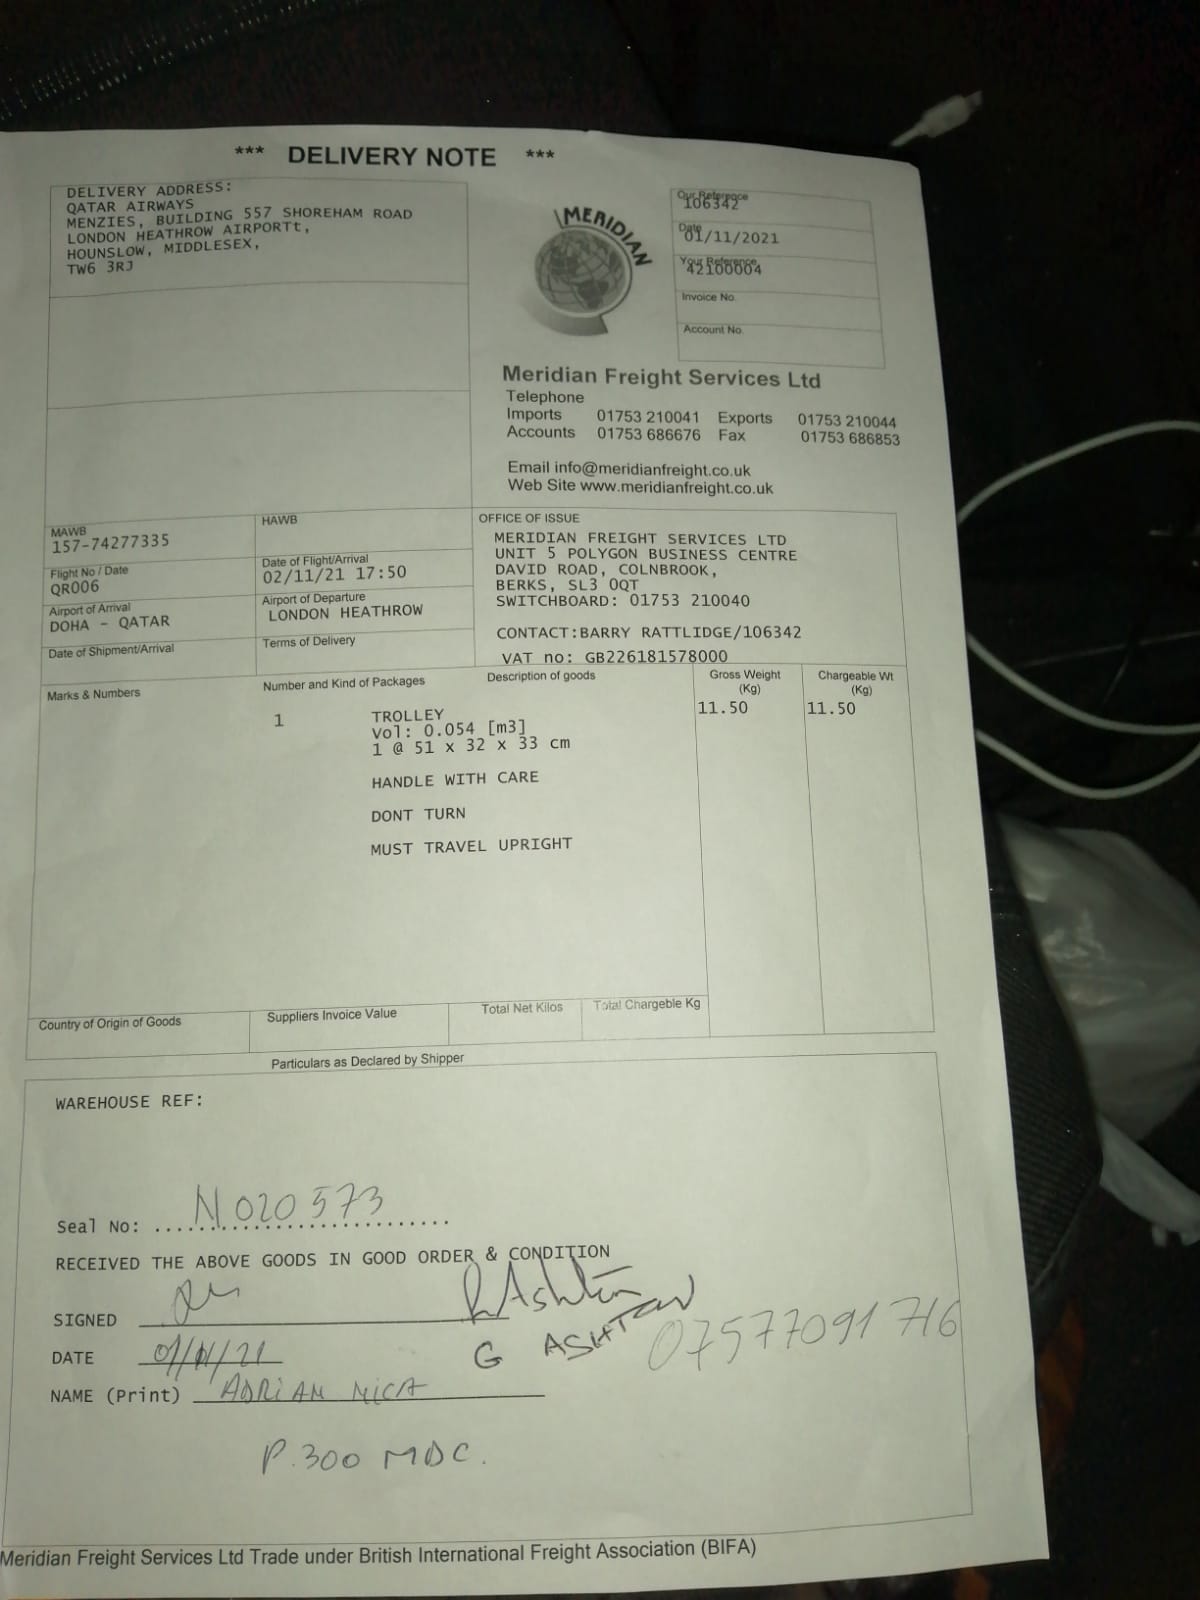 *** DELIVERY NOTE ***
DELIVERY ADDRESS:
QATAR AIRWAYS
MENZIES, BUILDING 557 SHOREHAM ROAD
LONDON HEATHROW AIRPORTt,
HOUNSLOW, MIDDLESEX,
TW6 3RJ
MERIDIAN
Our Reference
106342
Date
01/11/2021
Your Reference
42100004
Invoice No.
Account No.
Meridian Freight Services Ltd
Telephone
Imports 01753 210041 Exports 01753 210044
Accounts 01753 686676 Fax 01753 686853
Email info@meridianfreight.co.uk
Web Site www.meridianfreight.co.uk
MAWB
157-74277335
HAWB
Flight No / Date
QR006
Date of Flight/Arrival
02/11/21 17:50
Airport of Arrival
DOHA - QATAR
Airport of Departure
LONDON HEATHROW
Date of Shipment/Arrival
Terms of Delivery
OFFICE OF ISSUE
MERIDIAN FREIGHT SERVICES LTD
UNIT 5 POLYGON BUSINESS CENTRE
DAVID ROAD, COLNBROOK,
BERKS, SL3 0QT
SWITCHBOARD: 01753 210040
CONTACT:BARRY RATTLIDGE/106342
VAT no: GB226181578000
Marks & Numbers Number and Kind of Packages Description of goods Gross Weight (Kg) Chargeable Wt (Kg)
1 TROLLEY 11.50 11.50
Vol: 0.054 [m3]
1 @ 51 x 32 x 33 cm
HANDLE WITH CARE
DONT TURN
MUST TRAVEL UPRIGHT
Country of Origin of Goods Suppliers Invoice Value Total Net Kilos Total Chargeble Kg
Particulars as Declared by Shipper
WAREHOUSE REF:
Seal No: N020573
RECEIVED THE ABOVE GOODS IN GOOD ORDER & CONDITION
SIGNED RAshton
G ASHTON 07577091716
DATE 01/11/21
NAME (Print) ADRIAN MICA
P.300 MDC.
Meridian Freight Services Ltd Trade under British International Freight Association (BIFA)